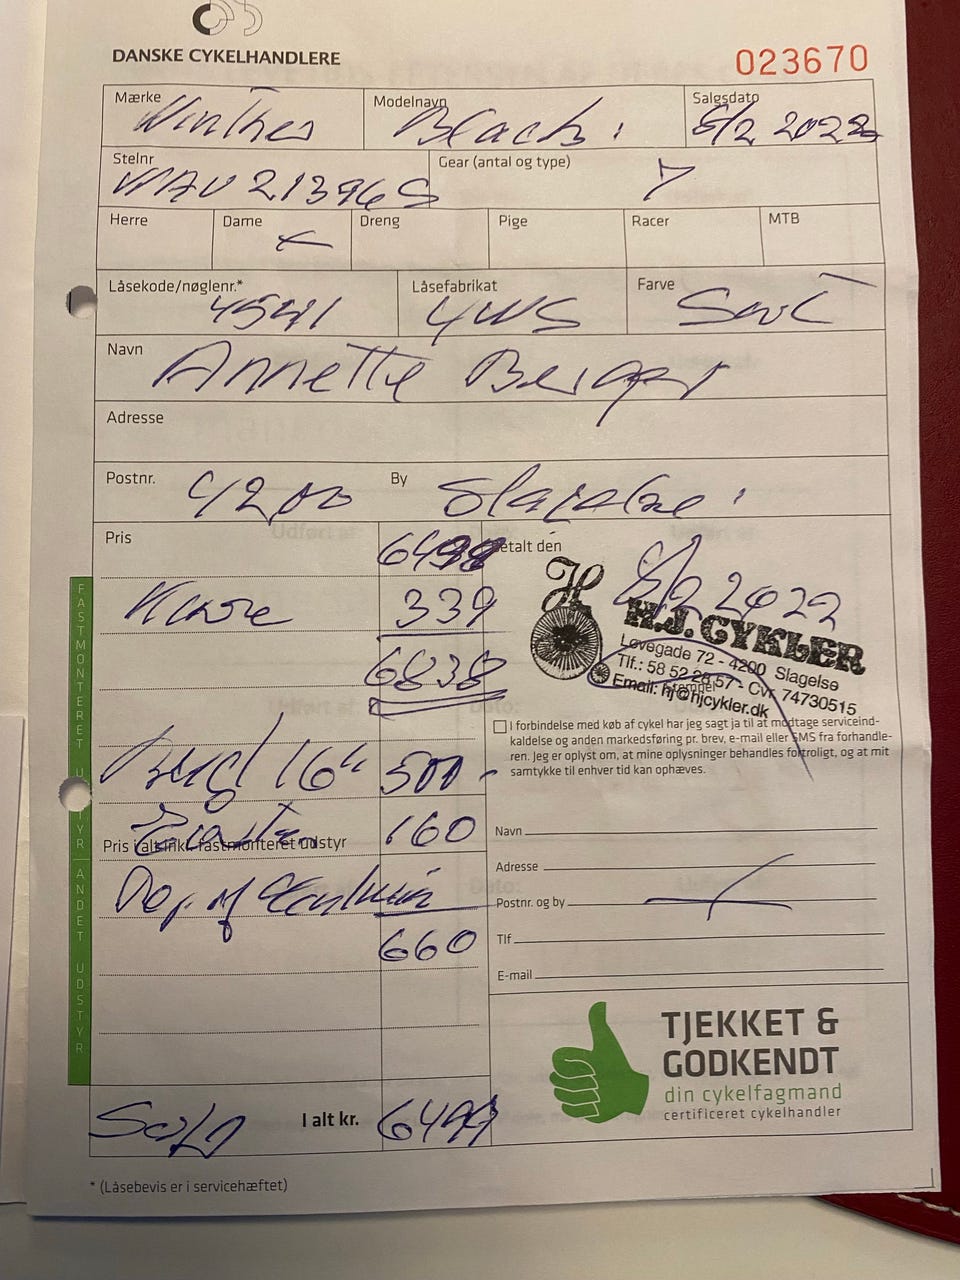 DANSKE CYKELHANDLERE
023670
Mærke Winther Modelnavn Black Salgsdato 8/2 2022
Stelnr Gear (antal og type) 7
Herre Dame Dreng Pige Racer MTB
Låsekode/nøglenr.* 4541 Låsefabrikat AWS Farve Sort
Navn Annette Berger
Adresse
Postnr. 4200 By Slagelse
Pris 6499 Betalt den 8/2 2022
Kurve 339
6838
H.J. CYKLER
Løvegade 72 - 4200 Slagelse
Tlf.: 58 52 28 57 - Cvr. 74730515
Email: hj@hjcykler.dk
Stempel
16" 500,-
160
Pris i alt inkl. fastmonteret udstyr
660
FASTMONTERET UDSTYR ANDET UDSTYR
I forbindelse med køb af cykel har jeg sagt ja til at modtage serviceind-
kaldelse og anden markedsføring pr. brev, e-mail eller SMS fra forhandle-
ren. Jeg er oplyst om, at mine oplysninger behandles fortroligt, og at mit
samtykke til enhver tid kan ophæves.
Navn
Adresse
Postnr. og by
Tlf
E-mail
TJEKKET &
GODKENDT
din cykelfagmand
certificeret cykelhandler
I alt kr. 6499
* (Låsebevis er i servicehæftet)